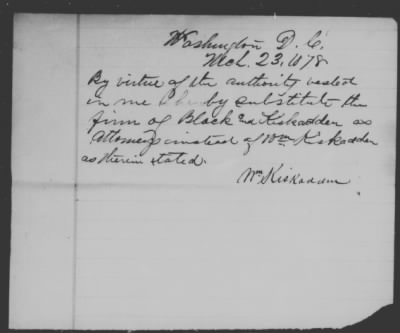 Washington D. C.
Mch. 23, 1878
By virtue of the authority vested
in me I hereby substitute the
firm of Black & Kiskadden as
Attorneys instead of Wm Kiskadden
as therein stated.
Wm Kiskadden